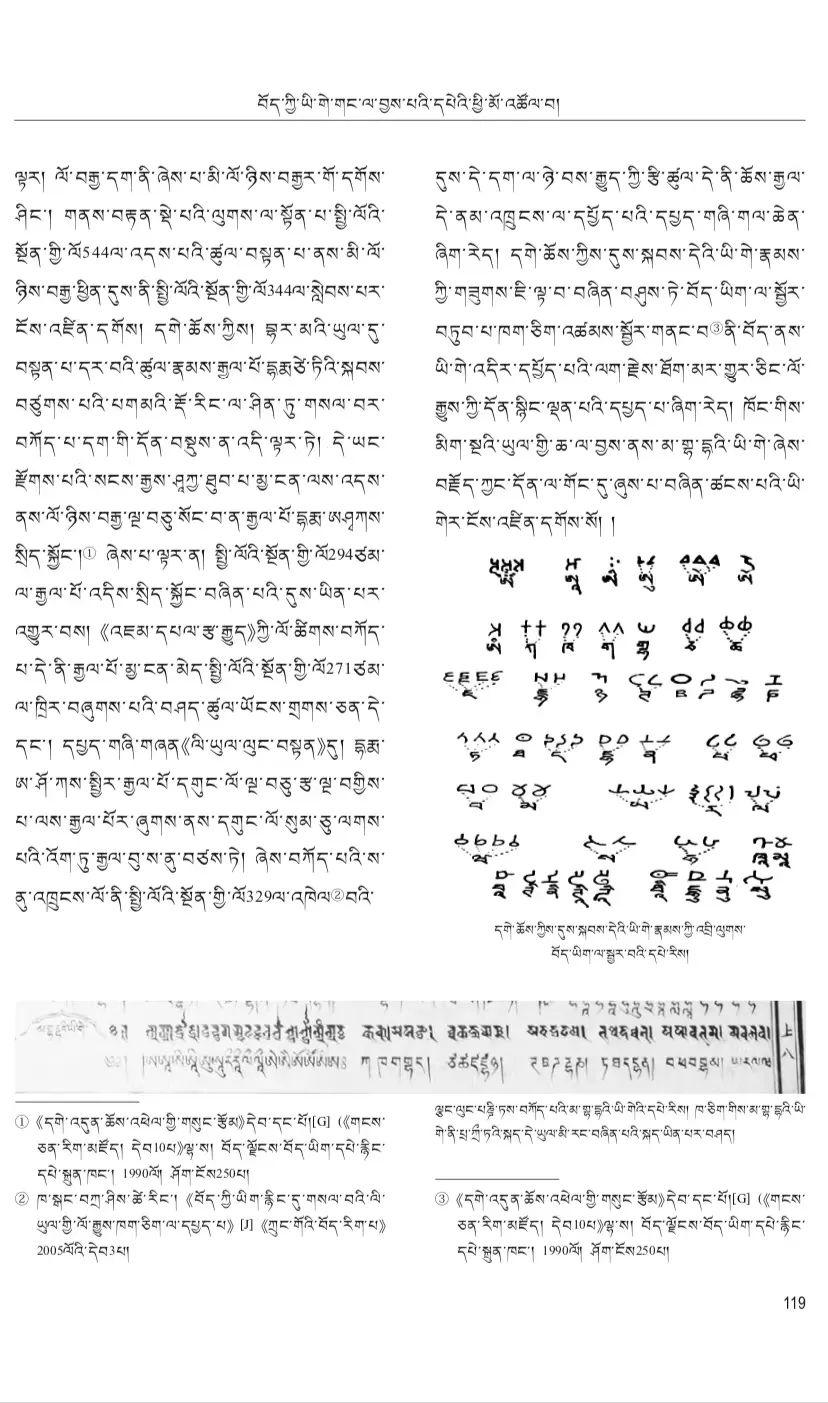 བོད་ཀྱི་ཡི་གེ་གང་ལ་བྱས་པའི་དཔེའི་ཕྱི་མོ་འཚོལ་བ།
ལྟར། ལོ་བརྒྱ་དག་ནི་ཞེས་པ་མི་ལོ་ཉིས་བརྒྱར་གོ་དགོས་
ཤིང་། གནས་བརྟན་སྡེ་པའི་ལུགས་ལ་སྟོན་པ་སྤྱི་ལོའི་
སྔོན་གྱི་ལོ544ལ་འདས་པའི་ཚུལ་བསྟན་པ་ནས་མི་ལོ་
ཉིས་བརྒྱ་ཕྱིན་དུས་ནི་སྤྱི་ལོའི་སྔོན་གྱི་ལོ344ལ་སླེབས་པར་
ངོས་འཛིན་དགོས། དགེ་ཆོས་ཀྱིས། བྷར་མའི་ཡུལ་དུ་
བསྟན་པ་དར་བའི་ཚུལ་རྣམས་རྒྱལ་པོ་དྷརྨ་ཙེ་ཏིའི་སྐབས་
བཙུགས་པའི་པགམའི་རྡོ་རིང་ལ་ཤིན་ཏུ་གསལ་བར་
བཀོད་པ་དག་གི་དོན་བསྡུས་ན་འདི་ལྟར་ཏེ། དེ་ཡང་
རྫོགས་པའི་སངས་རྒྱས་ཤཱཀྱ་ཐུབ་པ་མྱ་ངན་ལས་འདས་
ནས་ལོ་ཉིས་བརྒྱ་ལྔ་བཅུ་སོང་བ་ན་རྒྱལ་པོ་དྷརྨ་ཨ་ཤཱཀས་
སྲིད་སྐྱོང་།① ཞེས་པ་ལྟར་ན། སྤྱི་ལོའི་སྔོན་གྱི་ལོ294ཙམ་
ལ་རྒྱལ་པོ་འདིས་སྲིད་སྐྱོང་བཞིན་པའི་དུས་ཡིན་པར་
འགྱུར་བས། 《འཇམ་དཔལ་རྩ་རྒྱུད》ཀྱི་ལོ་ཚིགས་བཀོད་
པ་དེ་ནི་རྒྱལ་པོ་མྱ་ངན་མེད་སྤྱི་ལོའི་སྔོན་གྱི་ལོ271ཙམ་
ལ་ཁྲིར་བཞུགས་པའི་བཤད་ཚུལ་ཡོངས་གྲགས་ཅན་དེ་
དང་། དཔྱད་གཞི་གཞན《ལི་ཡུལ་ལུང་བསྟན》དུ། དྷརྨ་
ཨ་ཤོ་ཀས་སྤྱིར་རྒྱལ་པོ་དགུང་ལོ་ལྔ་བཅུ་རྩ་ལྔ་བགྱིས་
པ་ལས་རྒྱལ་པོར་ཞུགས་ནས་དགུང་ལོ་སུམ་ཅུ་ལགས་
པའི་འོག་ཏུ་རྒྱལ་བུ་ས་ནུ་བཙས་ཏེ། ཞེས་བཀོད་པའི་ས་
ནུ་འཁྲུངས་ལོ་ནི་སྤྱི་ལོའི་སྔོན་གྱི་ལོ329ལ་འཁེལ②བའི་
དུས་དེ་དག་ལ་ཉེ་བས་རྒྱུད་ཀྱི་རྩི་ཚུལ་དེ་ནི་ཆོས་རྒྱལ་
དེ་ནམ་འཁྲུངས་ལ་དཔྱོད་པའི་དཔྱད་གཞི་གལ་ཆེན་
ཞིག་རེད། དགེ་ཆོས་ཀྱིས་དུས་སྐབས་དེའི་ཡི་གེ་རྣམས་
ཀྱི་གཟུགས་ཇི་ལྟ་བ་བཞིན་བཤུས་ཏེ་བོད་ཡིག་ལ་སྦྱོར་
བཏུབ་པ་ཁག་ཅིག་འཚམས་སྦྱོར་གནང་བ③ནི་བོད་ནས་
ཡི་གེ་འདིར་དཔྱོད་པའི་ལག་རྗེས་ཐོག་མར་གྱུར་ཅིང་ལོ་
རྒྱུས་ཀྱི་དོན་སྙིང་ལྡན་པའི་དཔྱད་པ་ཞིག་རེད། ཁོང་གིས་
མིག་སྔའི་ཡུལ་གྱི་ཆ་ལ་བྱས་ནས་མ་གྷ་དྷའི་ཡི་གེ་ཞེས་
བརྗོད་ཀྱང་དོན་ལ་གོང་དུ་ཞུས་པ་བཞིན་ཚངས་པའི་ཡི་
གེར་ངོས་འཛིན་དགོས་སོ། །
དགེ་ཆོས་ཀྱིས་དུས་སྐབས་དེའི་ཡི་གེ་རྣམས་ཀྱི་འབྲི་ལུགས་
བོད་ཡིག་ལ་སྦྱར་བའི་དཔེ་རིས།
ལྕང་ལུང་པཎྜི་ཏས་བཀོད་པའི་མ་གྷ་དྷའི་ཡི་གེའི་དཔེ་རིས། ཁ་ཅིག་གིས་མ་གྷ་དྷའི་ཡི་
གེ་ནི་པྲ་ཀྲྀ་ཏའི་སྐད་དེ་ཡུལ་མི་རང་བཞིན་པའི་སྐད་ཡིན་པར་བཤད།
① 《དགེ་འདུན་ཆོས་འཕེལ་གྱི་གསུང་རྩོམ》དེབ་དང་པོ།[G] (《གངས་
ཅན་རིག་མཛོད། དེབ10པ》ལྷ་ས། བོད་ལྗོངས་བོད་ཡིག་དཔེ་རྙིང་
དཔེ་སྐྲུན་ཁང་། 1990ལོ། ཤོག་ངོས250པ།
② ཁ་སྒང་བཀྲ་ཤིས་ཚེ་རིང་། 《བོད་ཀྱི་ཡིག་རྙིང་དུ་གསལ་བའི་ལི་
ཡུལ་གྱི་ལོ་རྒྱུས་ཁག་ཅིག་ལ་དཔྱད་པ》 [J] 《ཀྲུང་གོའི་བོད་རིག་པ》
2005ལོའི་དེབ3པ།
③ 《དགེ་འདུན་ཆོས་འཕེལ་གྱི་གསུང་རྩོམ》དེབ་དང་པོ།[G] (《གངས་
ཅན་རིག་མཛོད། དེབ10པ》ལྷ་ས། བོད་ལྗོངས་བོད་ཡིག་དཔེ་རྙིང་
དཔེ་སྐྲུན་ཁང་། 1990ལོ། ཤོག་ངོས250པ།
119